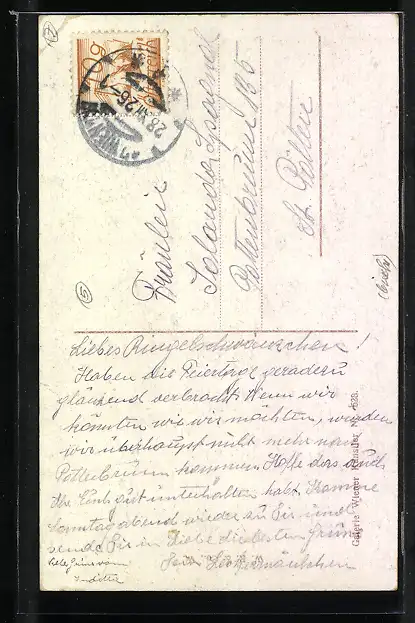 Fräulein
Jolanda Spagnol
Pottenbrunn 165
St. Pölten
Liebes Ringelschwänzchen!
Haben die Feiertage geradezu
glänzend verbracht. Wenn wir
könnten wie wir möchten, wurden
wir überhaupt nicht mehr nach
Pottenbrunn kommen. Hoffe dass auch
Ihr Euch gut unterhalten habt. Komme
Sonntag abend wieder zu Dir und
sende Dir in Liebe die besten Grüße
Dein
Galerie Wiener Künstler Nr. 628.